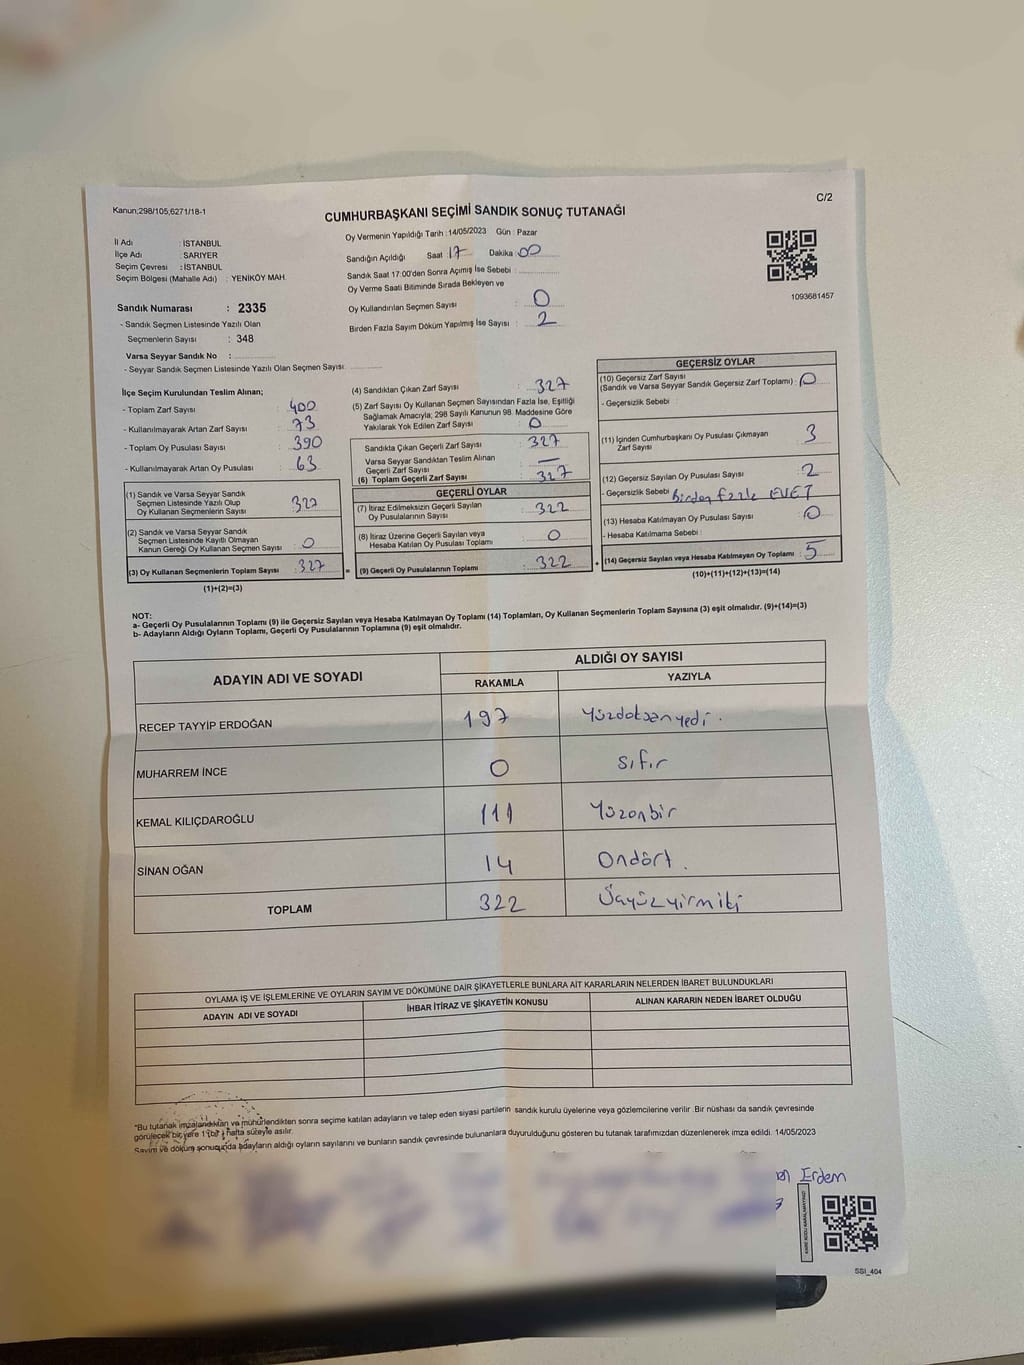 Kanun;298/105,6271/18-1
C/2
CUMHURBAŞKANI SEÇİMİ SANDIK SONUÇ TUTANAĞI
İl Adı : İSTANBUL
İlçe Adı : SARIYER
Seçim Çevresi : İSTANBUL
Seçim Bölgesi (Mahalle Adı) : YENİKÖY MAH.
Sandık Numarası : 2335
- Sandık Seçmen Listesinde Yazılı Olan
Seçmenlerin Sayısı : 348
Varsa Seyyar Sandık No :
- Seyyar Sandık Seçmen Listesinde Yazılı Olan Seçmen Sayısı:
Oy Vermenin Yapıldığı Tarih : 14/05/2023 Gün : Pazar
Sandığın Açıldığı Saat : 17 Dakika : 00
Sandık Saat 17:00'den Sonra Açılmış İse Sebebi :
Oy Verme Saati Bitiminde Sırada Bekleyen ve
Oy Kullandırılan Seçmen Sayısı : 0
Birden Fazla Sayım Döküm Yapılmış İse Sayısı : 2
1093681457
İlçe Seçim Kurulundan Teslim Alınan;
- Toplam Zarf Sayısı : 400
- Kullanılmayarak Artan Zarf Sayısı : 73
- Toplam Oy Pusulası Sayısı : 390
- Kullanılmayarak Artan Oy Pusulası : 63
(1) Sandık ve Varsa Seyyar Sandık
Seçmen Listesinde Yazılı Olup
Oy Kullanan Seçmenlerin Sayısı : 327
(2) Sandık ve Varsa Seyyar Sandık
Seçmen Listesinde Kayıtlı Olmayan
Kanun Gereği Oy Kullanan Seçmen Sayısı : 0
(3) Oy Kullanan Seçmenlerin Toplam Sayısı : 327
(1)+(2)=(3)
(4) Sandıktan Çıkan Zarf Sayısı : 327
(5) Zarf Sayısı Oy Kullanan Seçmen Sayısından Fazla İse, Eşitliği
Sağlamak Amacıyla; 298 Sayılı Kanunun 98. Maddesine Göre
Yakılarak Yok Edilen Zarf Sayısı : 0
Sandıkta Çıkan Geçerli Zarf Sayısı : 327
Varsa Seyyar Sandıktan Teslim Alınan
Geçerli Zarf Sayısı : —
(6) Toplam Geçerli Zarf Sayısı : 327
GEÇERLİ OYLAR
(7) İtiraz Edilmeksizin Geçerli Sayılan
Oy Pusulalarının Sayısı : 322
(8) İtiraz Üzerine Geçerli Sayılan veya
Hesaba Katılan Oy Pusulası Toplamı : 0
= (9) Geçerli Oy Pusulalarının Toplamı : 322
GEÇERSİZ OYLAR
(10) Geçersiz Zarf Sayısı
(Sandık ve Varsa Seyyar Sandık Geçersiz Zarf Toplamı) : 0
- Geçersizlik Sebebi :
(11) İçinden Cumhurbaşkanı Oy Pusulası Çıkmayan
Zarf Sayısı : 3
(12) Geçersiz Sayılan Oy Pusulası Sayısı : 2
- Geçersizlik Sebebi Birden fazla EVET
(13) Hesaba Katılmayan Oy Pusulası Sayısı : 0
- Hesaba Katılmama Sebebi :
+ (14) Geçersiz Sayılan veya Hesaba Katılmayan Oy Toplamı : 5
(10)+(11)+(12)+(13)=(14)
NOT:
a- Geçerli Oy Pusulalarının Toplamı (9) ile Geçersiz Sayılan veya Hesaba Katılmayan Oy Toplamı (14) Toplamları, Oy Kullanan Seçmenlerin Toplam Sayısına (3) eşit olmalıdır. (9)+(14)=(3)
b- Adayların Aldığı Oyların Toplamı, Geçerli Oy Pusulalarının Toplamına (9) eşit olmalıdır.
ADAYIN ADI VE SOYADI
ALDIĞI OY SAYISI
RAKAMLA YAZIYLA
RECEP TAYYİP ERDOĞAN 197 Yüzdoksanyedi.
MUHARREM İNCE 0 sıfır
KEMAL KILIÇDAROĞLU 111 Yüzonbir
SİNAN OĞAN 14 Ondört.
TOPLAM 322 Üçyüzyirmiiki
OYLAMA İŞ VE İŞLEMLERİNE VE OYLARIN SAYIM VE DÖKÜMÜNE DAİR ŞİKAYETLERLE BUNLARA AİT KARARLARIN NELERDEN İBARET BULUNDUKLARI
ADAYIN ADI VE SOYADI İHBAR İTİRAZ VE ŞİKAYETİN KONUSU ALINAN KARARIN NEDEN İBARET OLDUĞU
"Bu tutanak imzalandıktan ve mühürlendikten sonra seçime katılan adayların ve talep eden siyasi partilerin sandık kurulu üyelerine veya gözlemcilerine verilir. Bir nüshası da sandık çevresinde
görülecek bir yere 1 (bir) hafta süreyle asılır.
Sayım ve döküm sonucunda adayların aldığı oyların sayılarını ve bunların sandık çevresinde bulunanlara duyurulduğunu gösteren bu tutanak tarafımızdan düzenlenerek imza edildi. 14/05/2023
Erdem
KARE KODU KARALAMAYINIZ!
SSI_404